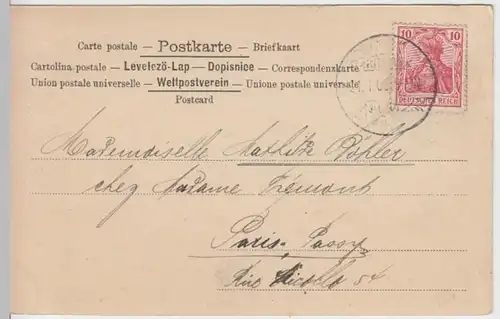 Carte postale — Postkarte — Briefkaart
Cartolina postale — Levelezö-Lap — Dopisnice — Correspondenzkarte
Union postale universelle — Weltpostverein — Unione postale universale
Postcard
10 10
DEUTSCHES REICH
Mademoiselle Mathilde Köhler
chez Madame Frémont
Paris-Passy
Rue Nicolo 54